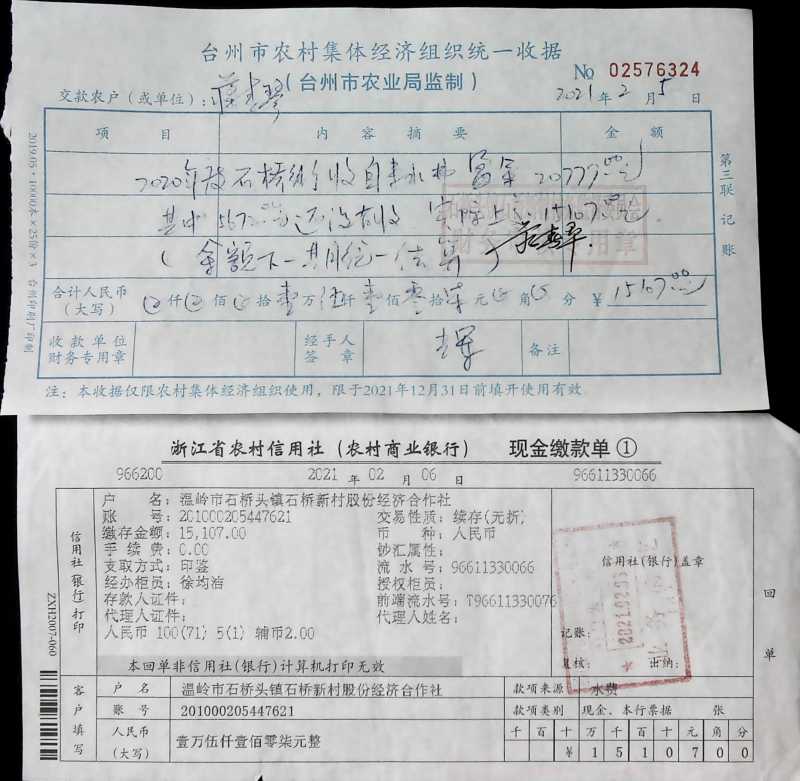 台州市农村集体经济组织统一收据
(台州市农业局监制)
No 02576324
交款农户(或单位):
2021年2月5日
项目 内容摘要 金额
2020年度石桥街收自来水費 20779.00元
其中5672.00元还没有收 实际上交15107.00元
(余额下一共用统一结算)
合计人民币(大写) 仟 佰 拾壹万伍仟壹佰零拾柒元 角 分 ¥15107.00
收款单位财务专用章 经手人签章 备注
注:本收据仅限农村集体经济组织使用,限于2021年12月31日前填开使用有效
第三联 记账
2019.05·10000本×25份×3 台州印刷厂印制
浙江省农村信用社(农村商业银行) 现金缴款单①
966200 2021年02月06日 96611330066
户名:温岭市石桥头镇石桥新村股份经济合作社
账号:201000205447621 交易性质:续存(无折)
缴存金额:15,107.00 币种:人民币
手续费:0.00 钞汇属性:
支取方式:印鉴 流水号:96611330066
经办柜员:徐均治 授权柜员:
存款人证件: 前端流水号:T96611330076
代理人证件: 代理人姓名:
人民币 100(71) 5(1) 辅币2.00
本回单非信用社(银行)计算机打印无效
信用社(银行)打印
信用社(银行)盖章
2021.02.06
记账:
复核: 出纳:
回单
ZXH2007-060
客户填写
户名 温岭市石桥头镇石桥新村股份经济合作社 款项来源 水费
账号 201000205447621 款项类别 现金、本行票据 张
人民币(大写) 壹万伍仟壹佰零柒元整 千百十万千百十元角分
¥1510700